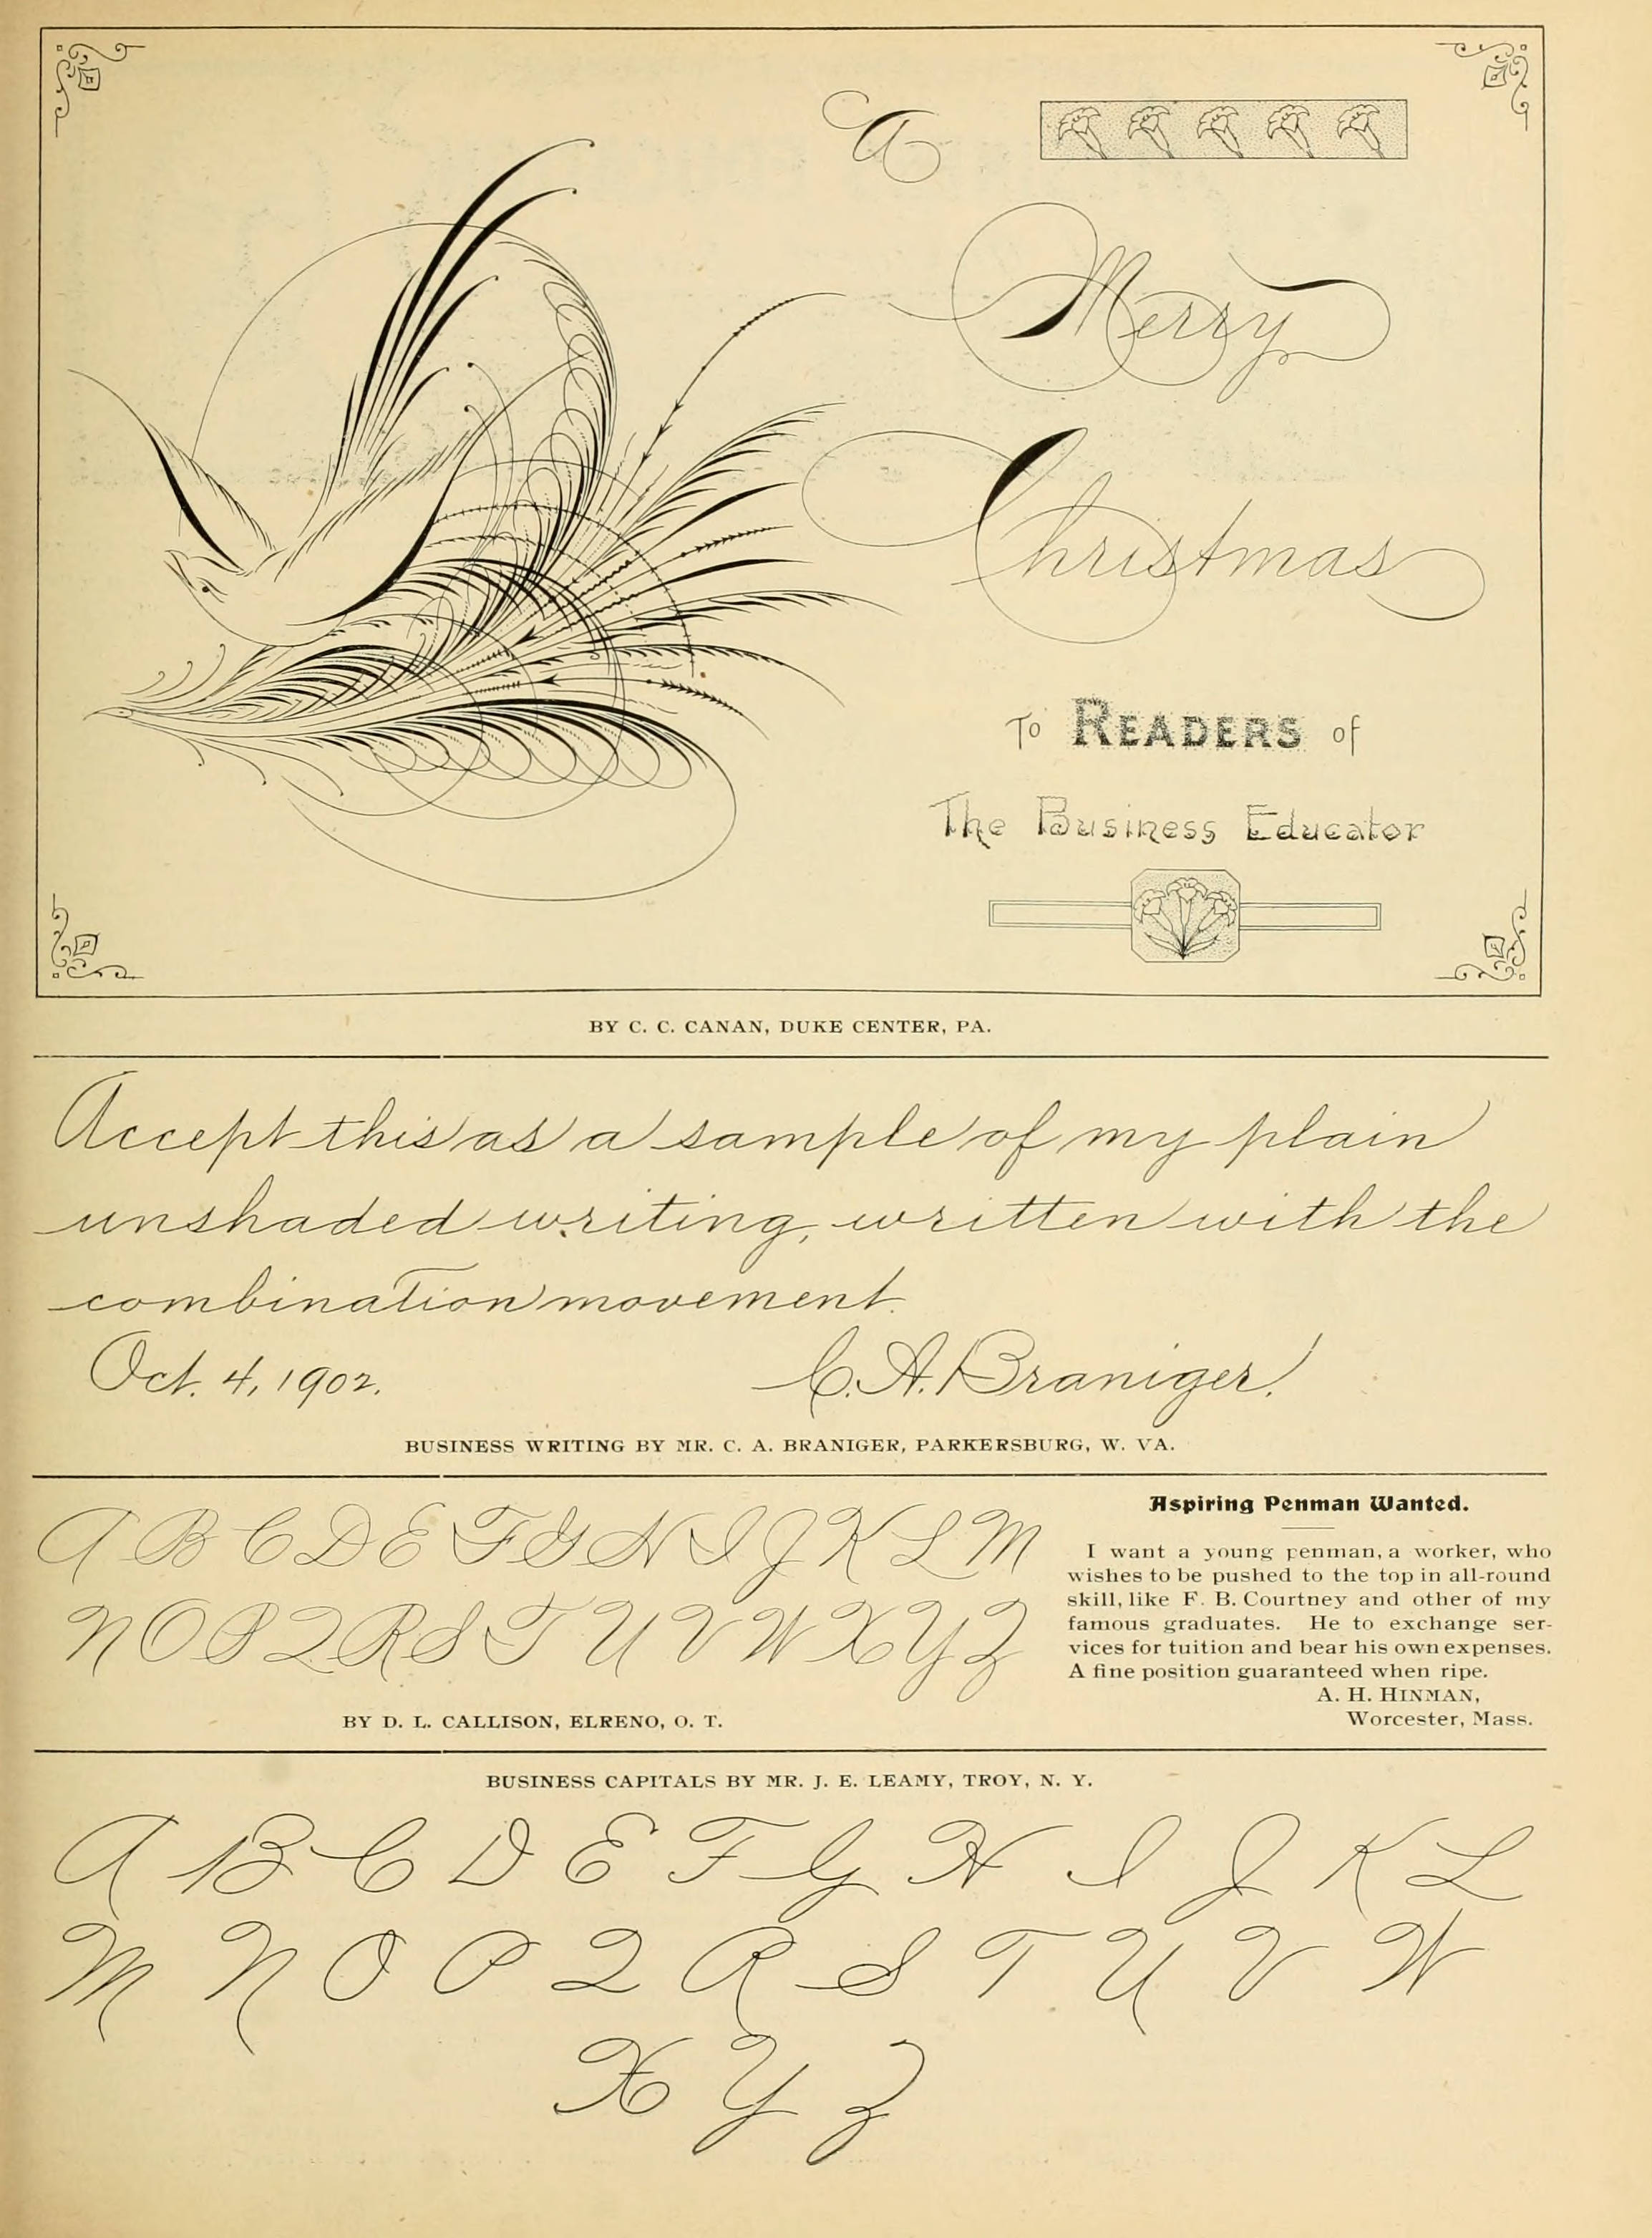 A
Merry
Christmas
To READERS of
The Business Educator
BY C. C. CANAN, DUKE CENTER, PA.
Accept this as a sample of my plain
unshaded writing, written with the
combination movement.
Oct. 4, 1902.
C. A. Braniger.
BUSINESS WRITING BY MR. C. A. BRANIGER, PARKERSBURG, W. VA.
A B C D E F G H I J K L M
N O P Q R S T U V W X Y Z
BY D. L. CALLISON, ELRENO, O. T.
Aspiring Penman Wanted.
I want a young penman, a worker, who
wishes to be pushed to the top in all-round
skill, like F. B. Courtney and other of my
famous graduates. He to exchange ser-
vices for tuition and bear his own expenses.
A fine position guaranteed when ripe.
A. H. HINMAN,
Worcester, Mass.
BUSINESS CAPITALS BY MR. J. E. LEAMY, TROY, N. Y.
A B C D E F G H I J K L
M N O P Q R S T U V W
X Y Z